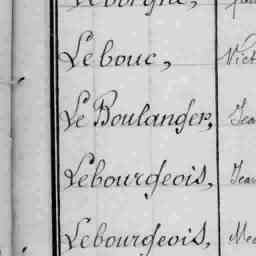 Leborgne,
Lebouc, Vict
Le Boulanger, Jea
Lebourgeois, Jea
Lebourgeois, Med